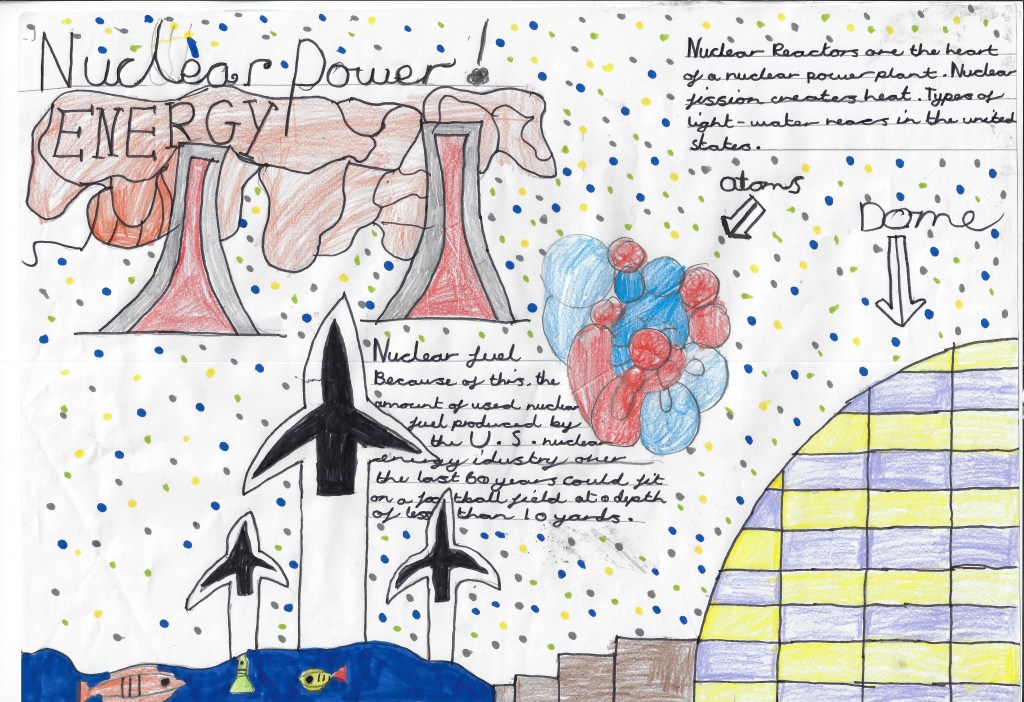 Nuclear Power!
ENERGY
Nuclear Reactors are the heart
of a nuclear power plant. Nuclear
fission creaters heat. Types of
light-water reacs in the united
states.
atoms
Dome
Nuclear fuel
Because of this, the
amount of used nuclear
fuel produced by
the U.S. nuclear
energy idustry over
the last 60 years could fit
on a football field at a depth
of less than 10 yards.